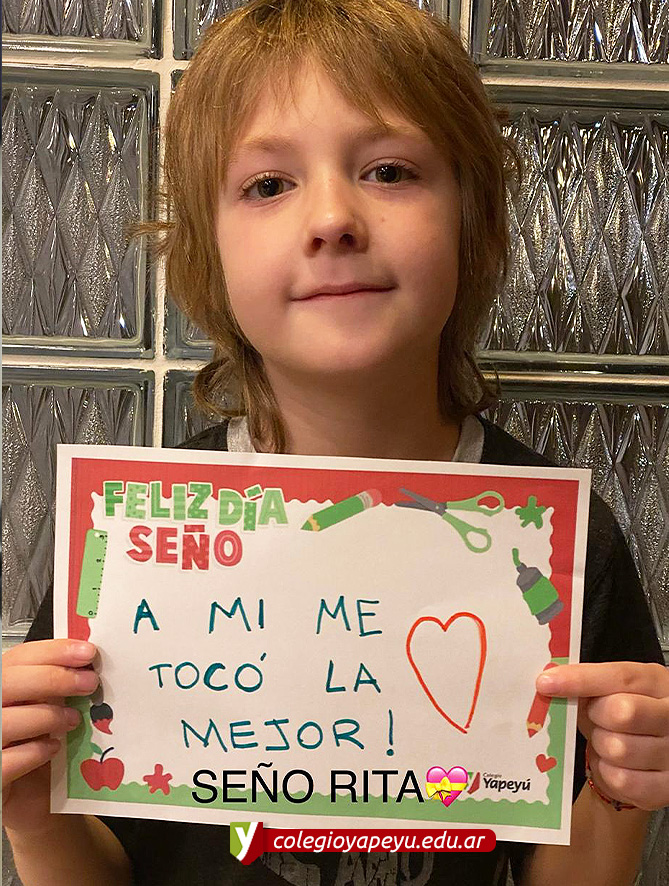 FELIZ DÍA
SEÑO
A MI ME
TOCÓ LA
MEJOR!
SEÑO RITA
Colegio
Yapeyú
colegioyapeyu.edu.ar